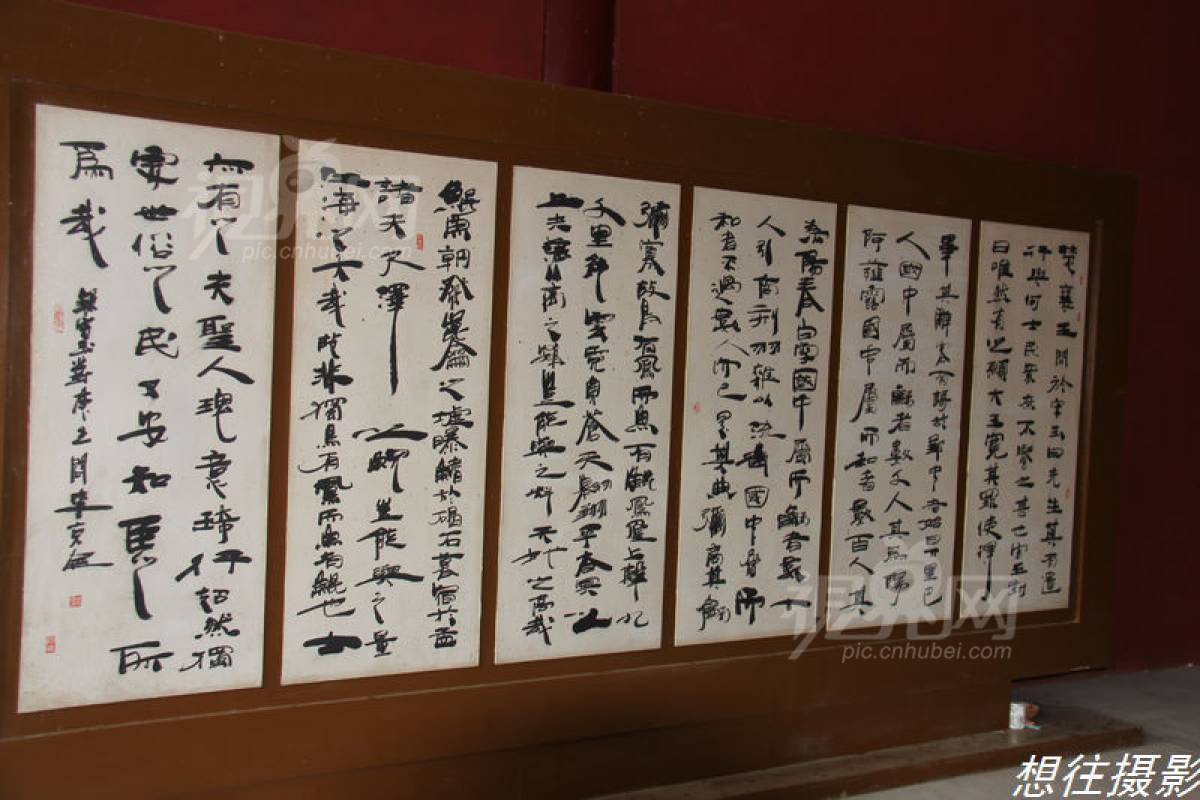 楚襄王問於宋玉曰先生其有遺
行與何士民眾庶不譽之甚也宋玉對
曰唯然有之願大王寬其罪使得
畢其辭客有歌於郢中者始曰下里巴
人國中屬而和者數千人其為陽
阿薤露國中屬而和者數百人其
為陽春白雪國中屬而和者數十
人引商刻羽雜以流徵國中屬而
和者不過數人而已是其曲彌高其和
彌寡故鳥有鳳而魚有鯤鳳凰上擊九
千里絕雲霓負蒼天翱翔乎杳冥之
上夫藩籬之鷃豈能與之料天地之高哉
鯤魚朝發崑崙之墟曝鬐於碣石暮宿於孟
諸夫尺澤之鯢豈能與之量
江海之大哉故非獨鳥有鳳而魚有鯤也士
亦有之夫聖人瑰意琦行超然獨
處世俗之民又安知臣之所
為哉
錄宋玉對楚王問
视界网
pic.cnhubei.com
视界网
pic.cnhubei.com
想往摄影